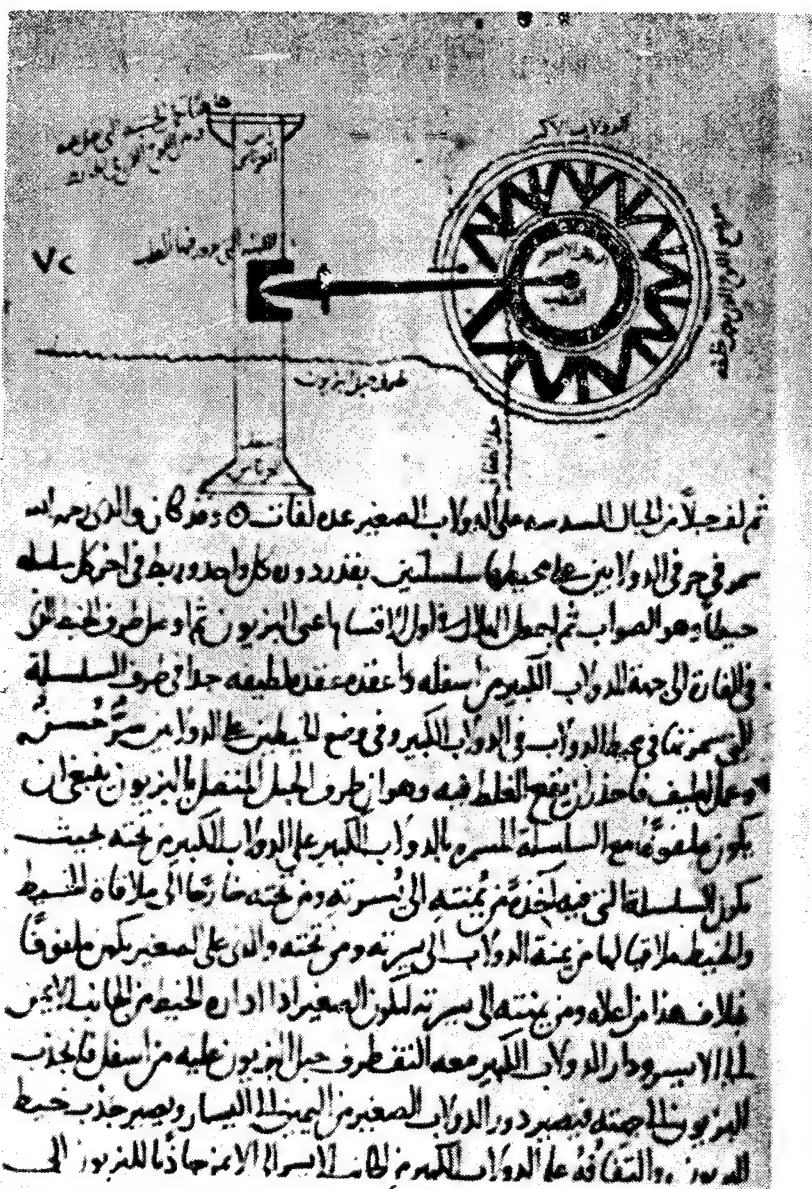 الدولاب الأكبر
رأس
القطب
٧٢
طرف حبل البزيون
ثم لف حبلاً من الحبال المسدسه على الدولاب الصغير عده لفات ٥ وقد كان والدى رحمه الله
سمر فى حرفى الدولابين على محيطها سلسلتين بقدر دون كل واحد وربط فى اخر كل سلسله
حيطاً وهو الصواب ثم اجعل الهلال فى اول الاقسام اعنى البزيون ثم اوصل طرف الخيط الذى
فى الفاره الى جهة الدولاب الكبير من اسفله واعقده عقده لطيفه جدا فى طرف السلسلة
التى سمرتها فى محيط الدولاب فى الدولاب الكبير وفى وضع الخيطين على الدولابين سرٌّ حسنٌ
وعمل لطيف فاحذر ان يقع الغلط فيه وهو ان طرف الحبل المتصل بالبزيون ينبغى ان
يكون ملفوفاً مع السلسلة المسمره بالدولاب الكبير على الدولاب الكبير من تحته بحيث
يكون السلسلة التى فيه اخذةً من يمنته الى يسرته ومن تحته خارجا الى ملاقاة الخيط
والخيط ملاقيا لها من يمنة الدولاب الى يسرته ومن تحته والذى على الصغير يكون ملفوفاً
بخلاف هذا من اعلاه ومن يمنته الى يسرته ليكون الصغير اذا اداره الخيط من الجانب الايمن
الى الايسر ودار الدولاب الكبير معه التف طرف حبل البزيون عليه من اسفل فانجذب
البزيون الى جهته فيصير دور الدولاب الصغير من اليمين الى اليسار ويصير جذب خيط
البزيون والتفافه على الدولاب الكبير من الجانب الايسر الى الايمن جاذبا للبزيون الى